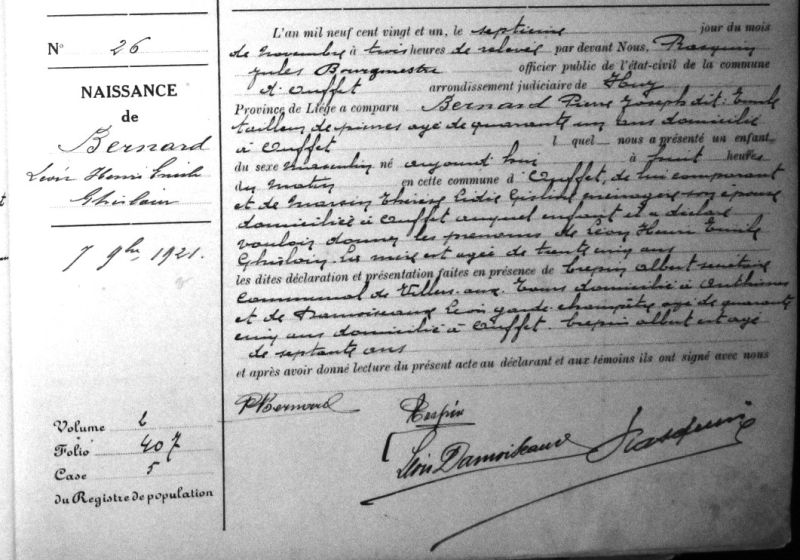 N° 26
NAISSANCE
de
Bernard
Léon Henri Emile
Ghislain
7 9bre 1921.
Volume 2
Folio 407
Case 5
du Registre de population
L'an mil neuf cent vingt et un, le septième jour du mois
de Novembre à trois heures de relevée par devant Nous, Rasquin
Jules Bourgmestre officier public de l'état-civil de la commune
d'Ouffet arrondissement judiciaire de Huy
Province de Liége a comparu Bernard Pierre Joseph dit: Emile
tailleur de pierres agé de quarante un ans domicilié
à Ouffet lequel nous a présenté un enfant
du sexe masculin né aujourd'hui à huit heures
du matin en cette commune d'Ouffet, de lui comparant
et de Marsin Thérèse Lidie ménagère son épouse
domiciliée à Ouffet auquel enfant il a déclaré
vouloir donner les prénoms de Léon Henri Emile
Ghislain. La mère est agée de trente cinq ans
les dites déclaration et présentation faites en présence de Crespin Albert secrétaire
communal de Villers-aux-Tours domicilié à Anthisnes
et de Damoiseaux Léon garde-champêtre agé de quarante
cinq ans domicilié à Ouffet. Crespin Albert est agé
de septante ans
et après avoir donné lecture du présent acte au déclarant et aux témoins ils ont signé avec nous
P Bernard
Crespin
Léon Damoiseaux
Rasquin